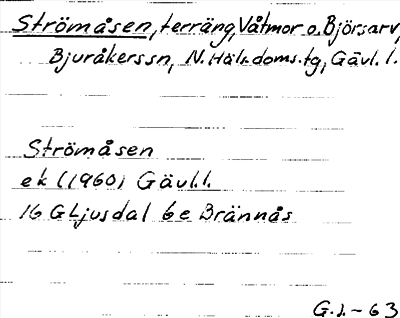 Strömåsen, terräng, Våtmor o. Björsarv,
Bjuråkerssn, N. Häls. doms. tg, Gävl. l.
Strömåsen
ek (1960) Gävl. l.
16 G Ljusdal 6e Brännås
G. J. - 63